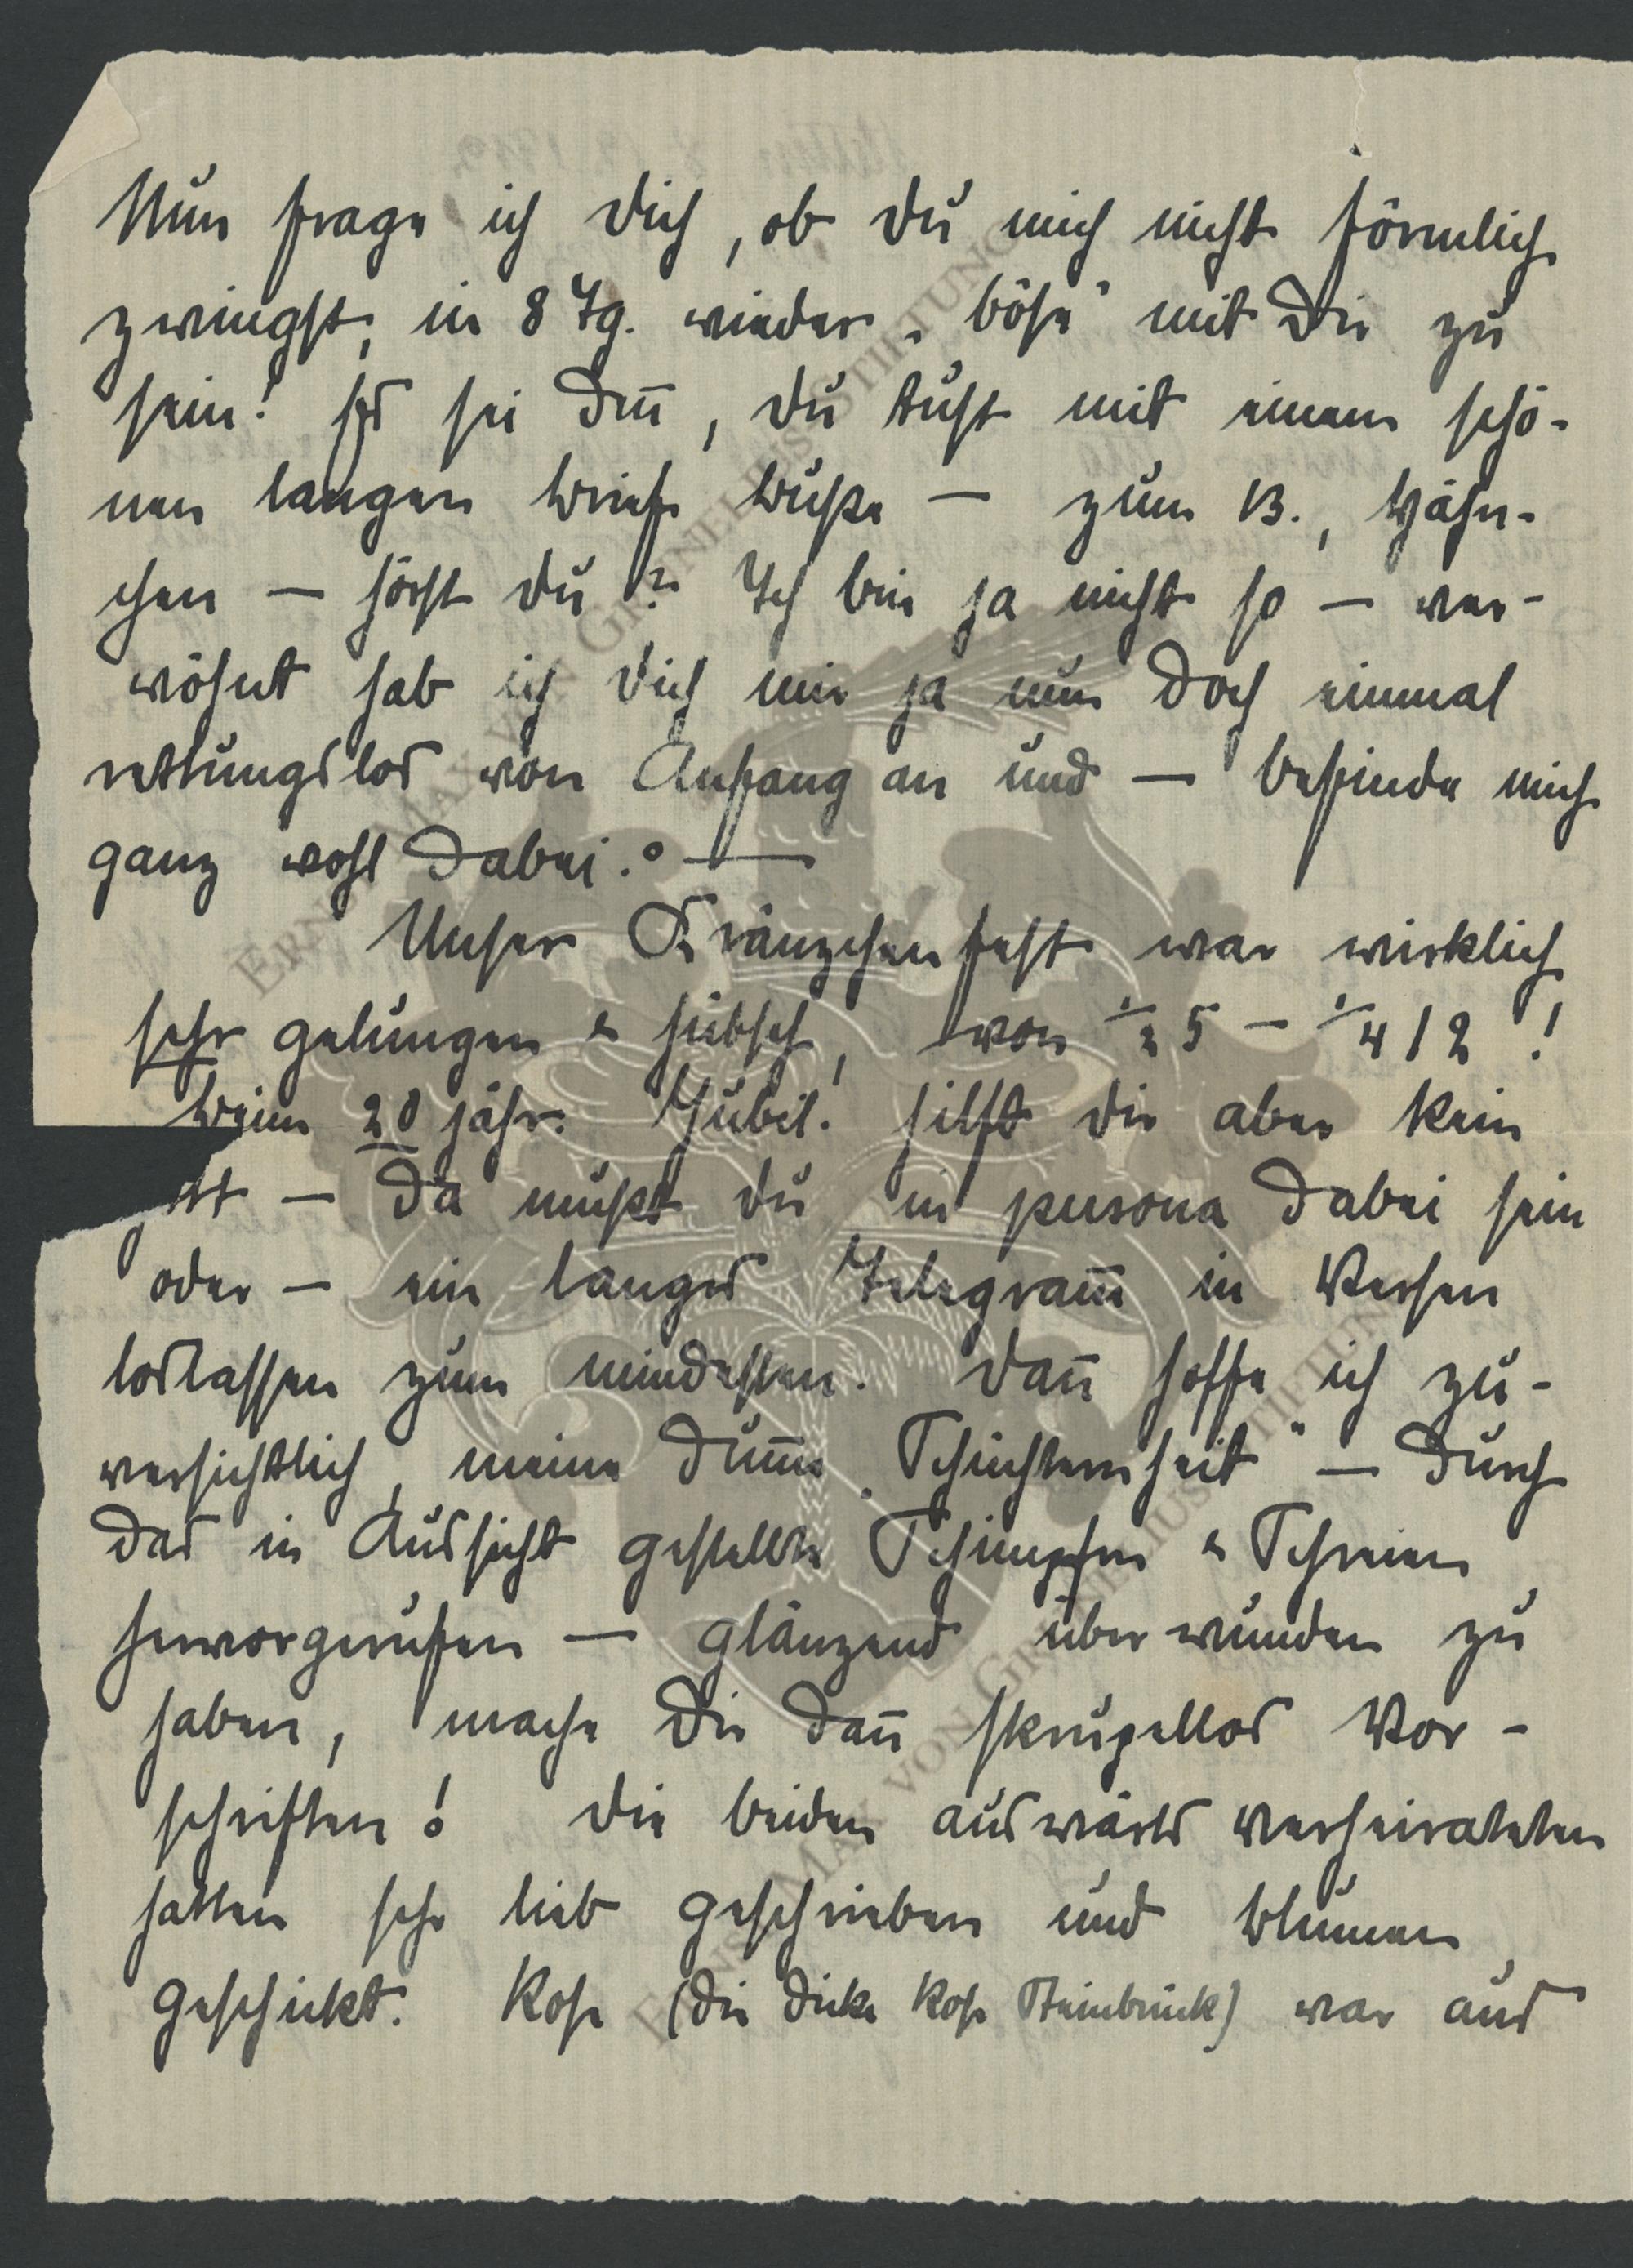 Nun frage ich Dich, ob Du mich nicht förmlich
zwingst, in 8 Tg. wieder „böse" mit Dir zu
sein! Es sei denn, Du tust mit einem schö-
nen langen Briefe Buße — zum B., Häsn-
chen — hörst Du? Ich bin ja nicht so — ver-
wöhnt hab ich Dich mir ja nun doch einmal
rettungslos von Anfang an und — befinde mich
ganz wohl dabei. —
Unser Kränzchenfest war wirklich
sehr gelungen & hübsch, von ½5 — ¼12!
Beim 20 jähr. Jubil. hilft Dir aber kein
tt — da mußt Du in persona dabei sein
oder — ein langes Telegram̅ in Versen
loslassen zum mindesten. Dan̅ hoffe ich zu-
versichtlich, meine dum̅e „Schüchternheit" — durch
das in Aussicht gestellte Schimpfen & Schreien
hervorgerufen — glänzend überwunden zu
haben, mache Dir dan̅ skrupellos Vor-
schriften! Die beiden auswärts Verheirateten
hatten sehr lieb geschrieben und Blumen
geschickt. Rose (die dicke Rose Steinbrück) war aus
ERNST MAX VON GRUNELIUS STIFTUNG
ERNST MAX VON GRUNELIUS STIFTUNG